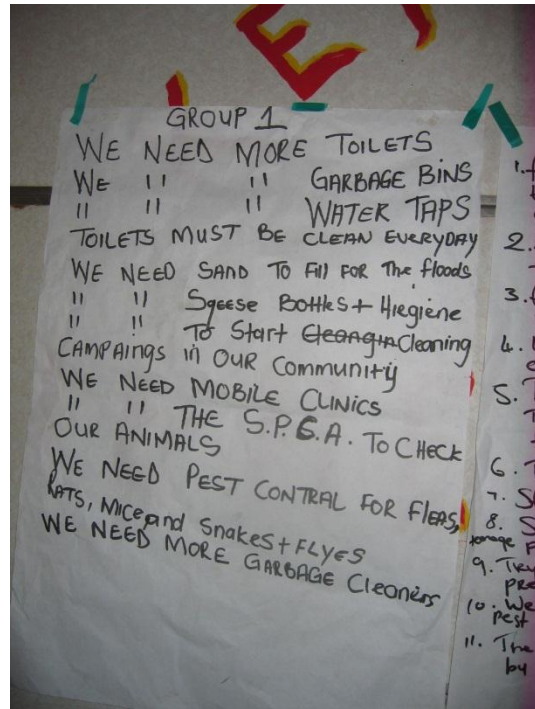 GROUP 1
WE NEED MORE TOILETS
WE " " GARBAGE BINS
" " " WATER TAPS
TOILETS MUST BE CLEAN EVERYDAY
WE NEED SAND TO Fill FOR The floods
" " Sqeese Bottles + Hiegiene
" " To Start Cleaning
CAMPAINGS in OUR Community
WE NEED MOBILE CLINICS
" " THE S.P.G.A. TO CHECK
OUR ANIMALS
WE NEED PEST CONTRAL FOR FLEAS,
RATS, MICE, and Snakes + FLYES
WE NEED MORE GARBAGE Cleaners
1.
2.
3.
4.
5.
6.
7.
8.
9. Try
10. We
pest
11. The
by